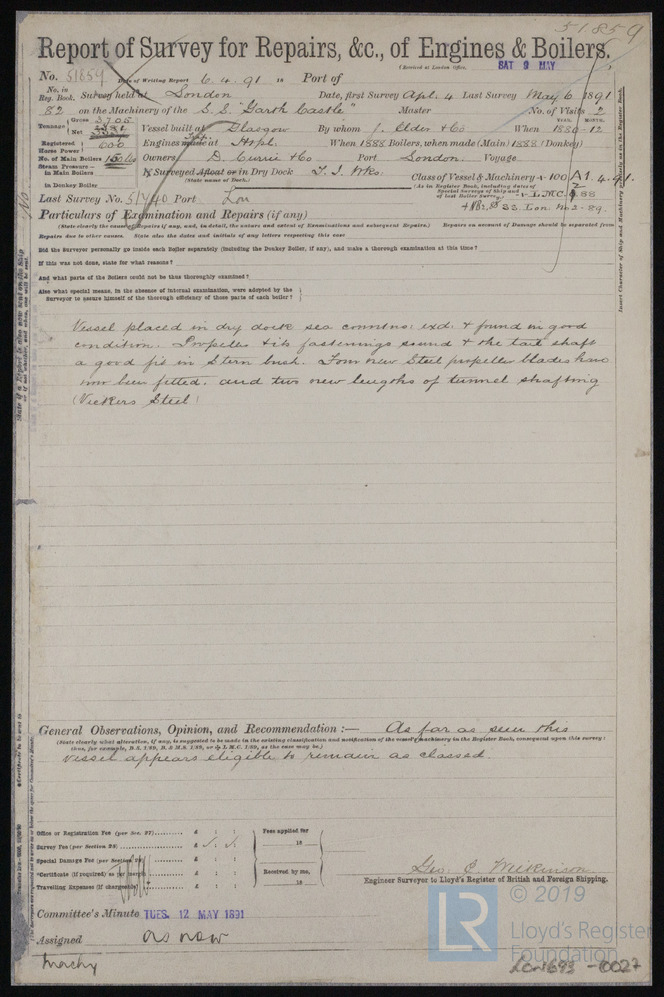 51859
Report of Survey for Repairs, &c., of Engines & Boilers.
(Received at London Office,
SAT 9 MAY
No. 51859 Date of Writing Report 6.4.91 18 Port of
No. in Reg. Book. Survey held at London Date, first Survey Apl. 4 Last Survey May 6 1891
82 on the Machinery of the S.S. "Garth Castle" Master No. of Visits 2
Tonnage Gross 3705 Net
Vessel built at Glasgow By whom J. Elder & Co When 1880-12
YEAR. MONTH.
Registered Horse Power 600 Engines made at When 1888 Boilers, when made (Main) 1888 (Donkey)
No. of Main Boilers
Steam Pressure—
in Main Boilers
Owners D. Currie & Co Port London. Voyage
in Donkey Boiler
If Surveyed Afloat or in Dry Dock T. I. Wks.
(State name of Dock.)
Class of Vessel & Machinery 100 A1. 4.91.
(As in Register Book, including dates of Special Surveys of Ship and of last Boiler Survey.)
L.M.C. 88
Last Survey No. 51740 Port Lon
S3. Lon. No 2-89.
Particulars of Examination and Repairs (if any)
(State clearly the cause of Repairs if any, and, in detail, the nature and extent of Examinations and subsequent Repairs.) Repairs on account of Damage should be separated from
Repairs due to other causes. State also the dates and initials of any letters respecting this case
Did the Surveyor personally go inside each Boiler separately (including the Donkey Boiler, if any), and make a thorough examination at this time?
If this was not done, state for what reasons?
And what parts of the Boilers could not be thoroughly examined?
Also what special means, in the absence of internal examination, were adopted by the
Surveyor to assure himself of the thorough efficiency of those parts of each boiler?
Vessel placed in dry dock sea connctns: exd. & found in good
condition. Propeller & its fastenings sound & the tail shaft
a good fit in Stern bush. Four new Steel propeller blades have
now been fitted. and two new lengths of tunnel shafting
(Vickers Steel)
General Observations, Opinion, and Recommendation :— As far as seen this
(State clearly what alteration, if any, is suggested to be made in the existing classification and notification of the vessel's machinery in the Register Book, consequent upon this survey;
thus, for example, B.S. 1/90, B. & M.S. 1/90, or L.M.C. 1/90, as the case may be.)
vessel appears eligible to remain as classed.
Office or Registration Fee (per Sec. 27) £ : :
Fees applied for
Survey Fee (per Section 28) £ : :
18
Special Damage Fee (per Section £ : :
*Certificate (if required) as per margin £ : :
Received by me,
Travelling Expenses (if chargeable) £ : :
18
Geo. C. Wilkinson
Engineer Surveyor to Lloyd's Register of British and Foreign Shipping.
Committee's Minute TUES. 12 MAY 1891
Assigned as now
Machy
LR
© 2019
Lloyd's Register
Foundation
Lon693-0027